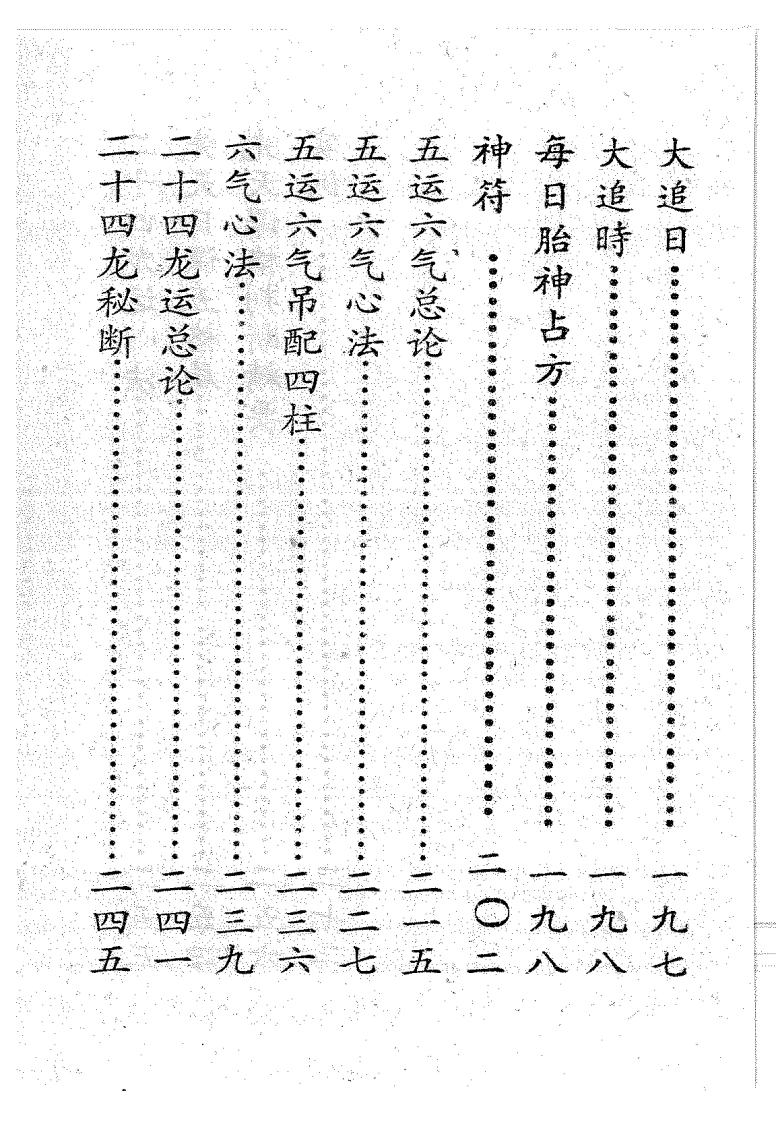 大追日……一九七
大追時……一九八
每日胎神占方……一九八
神符……二〇二
五运六气总论……二一五
五运六气心法……二二七
五运六气吊配四柱……二三六
六气心法……二三九
二十四龙运总论……二四一
二十四龙秘断……二四五